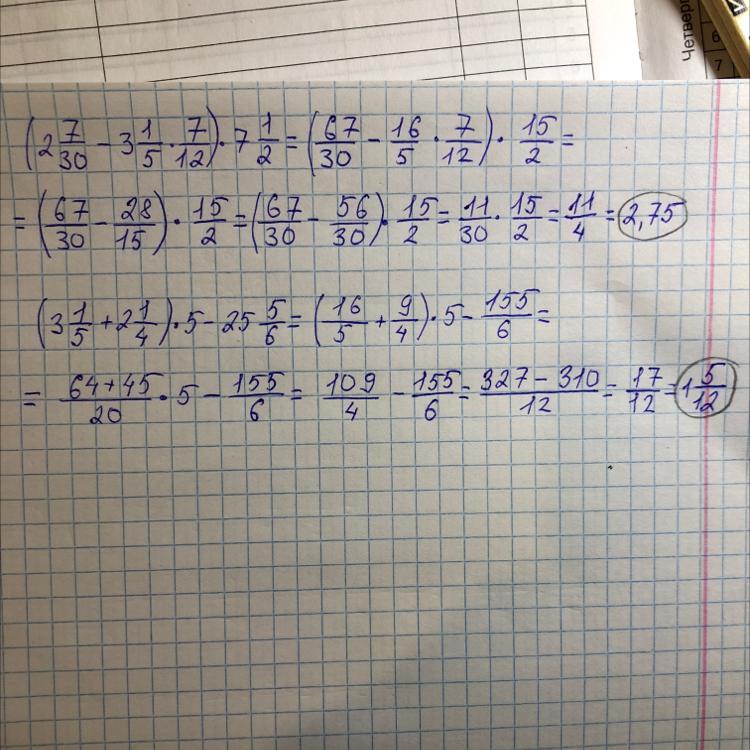 Четверг
6
7
(2 7/30 − 3 1/5 · 7/12) · 7 1/2 = (67/30 − 16/5 · 7/12) · 15/2 =
= (67/30 − 28/15) · 15/2 = (67/30 − 56/30) · 15/2 = 11/30 · 15/2 = 11/4 = 2,75
(3 1/5 + 2 1/4) · 5 − 25 5/6 = (16/5 + 9/4) · 5 − 155/6 =
= 64+45/20 · 5 − 155/6 = 109/4 − 155/6 = 327−310/12 = 17/12 = 1 5/12